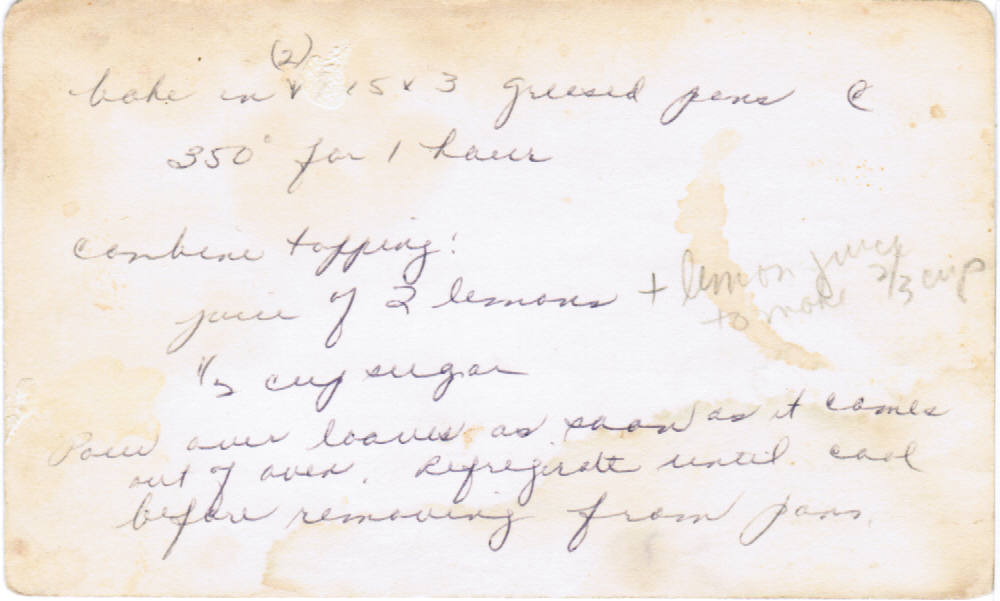 (2)
bake in x 5 x 3 greased pans @
350° for 1 hour
Combine topping:
juice of 2 lemons + lemon juice
to make 2/3 cup
cup sugar
Pour over loaves as soon as it comes
out of oven. Refregirate until cool
before removing from pans.